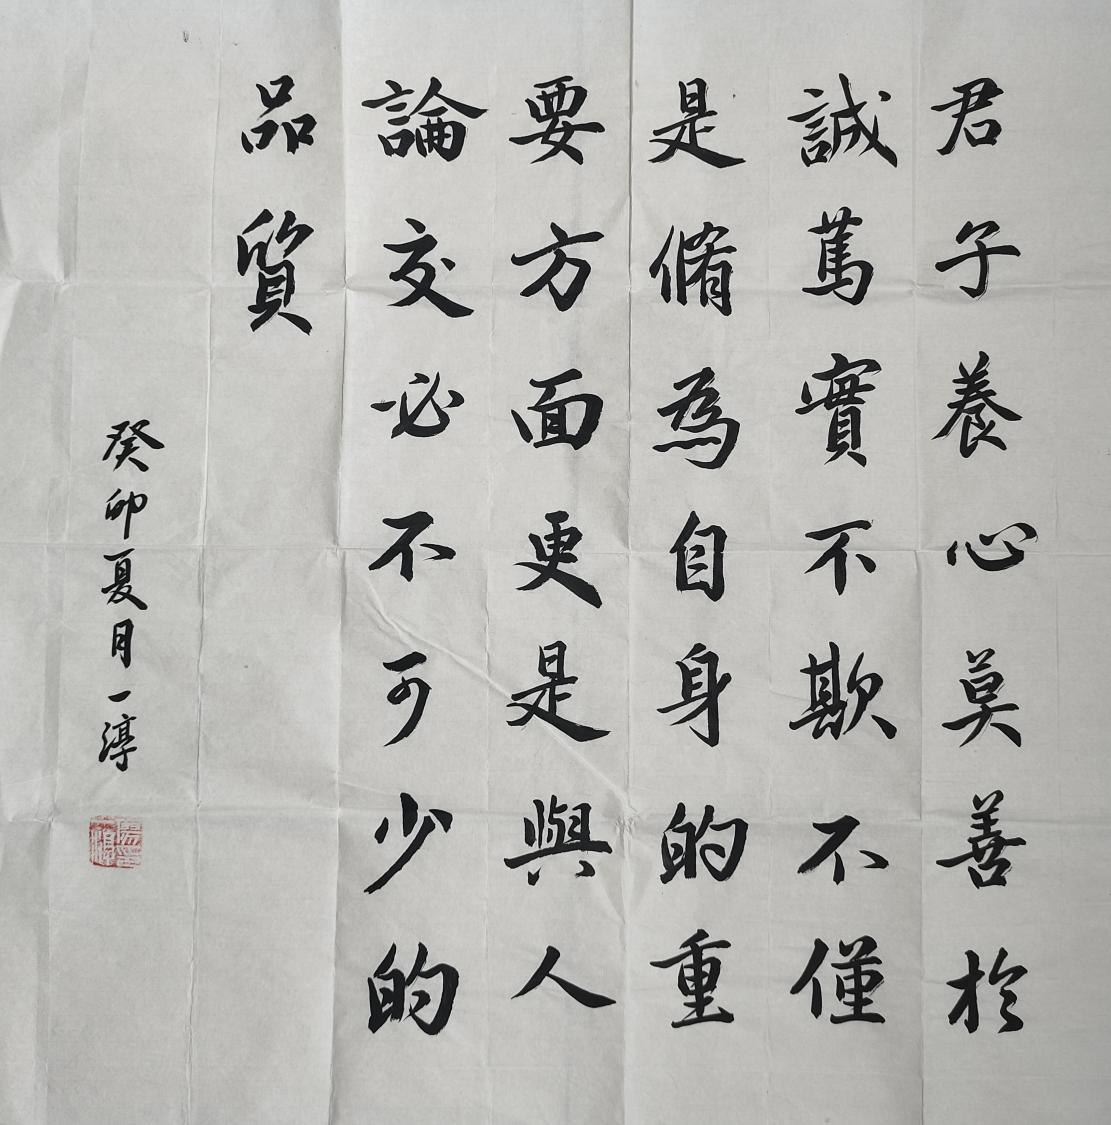 君子養心莫善於
誠篤實不欺不僅
是脩為自身的重
要方面更是與人
論交必不可少的
品質
癸卯夏月一淳